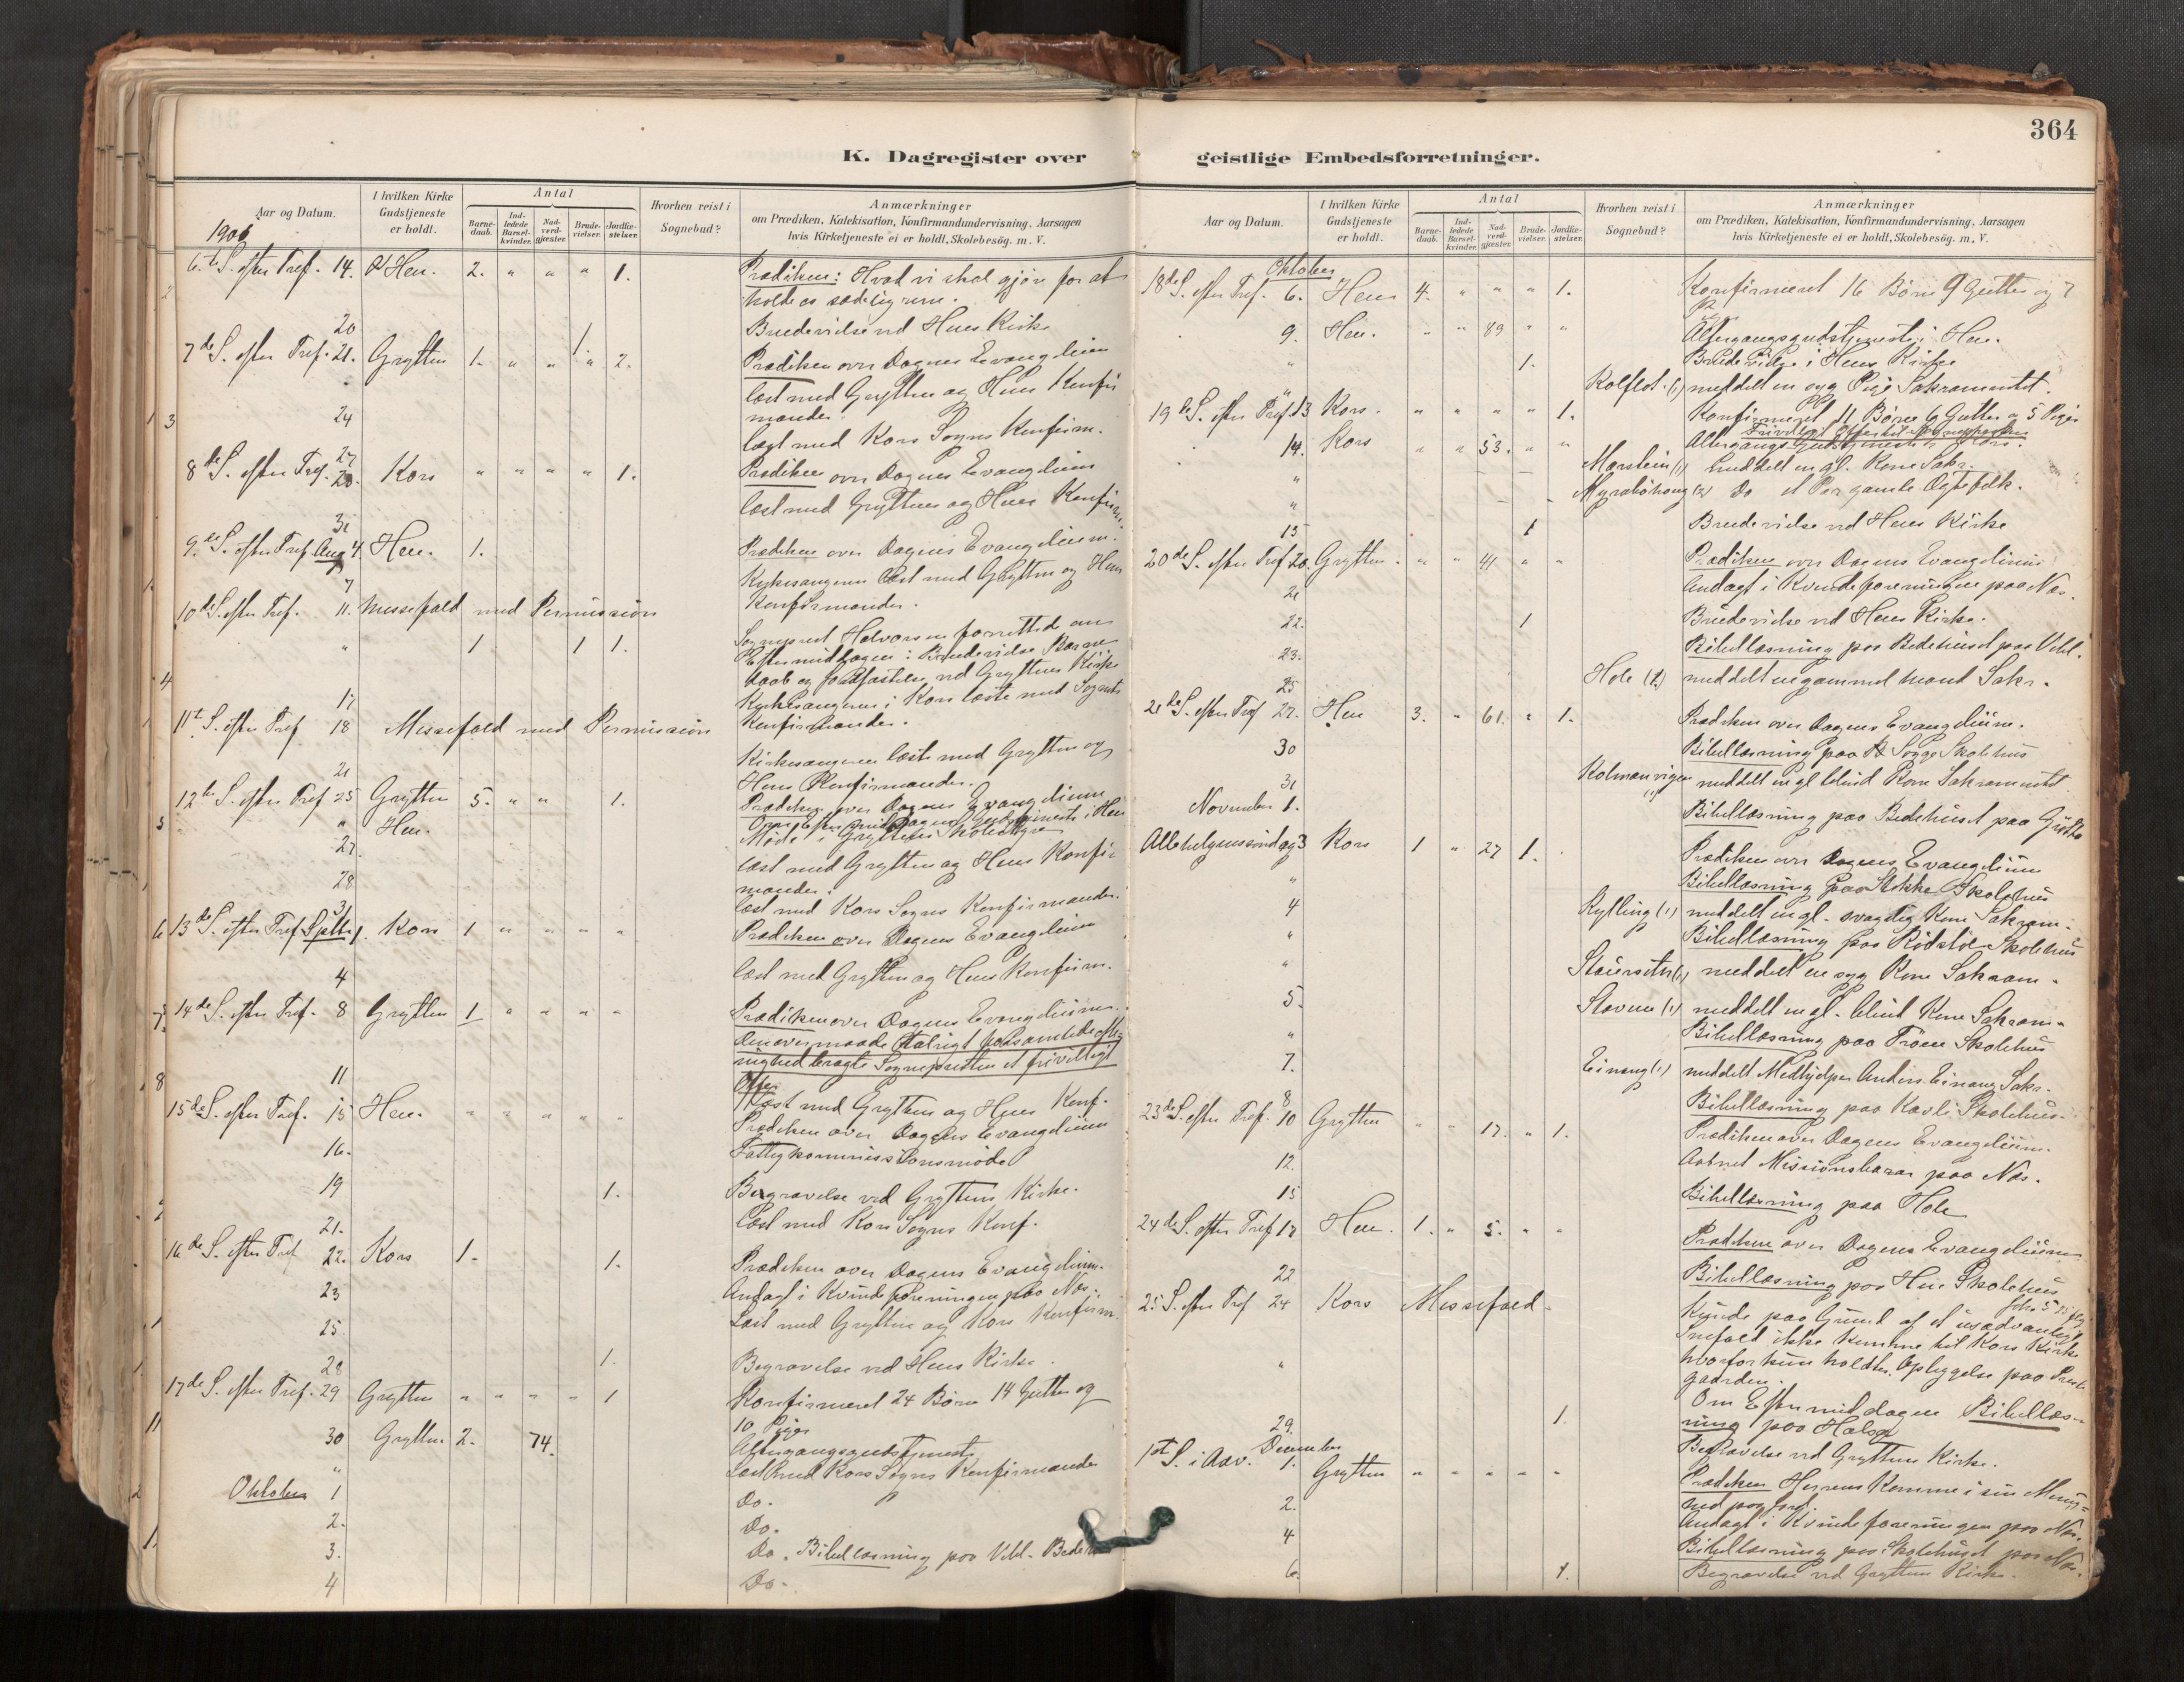 364
K. Dagregister over
geistlige Embedsforretninger.
Aar og Datum.
I hvilken Kirke Gudstjeneste er holdt.
Antal
Barne-daab.
Ind-ledede Barsel-kvinder.
Nad-verd-gjester.
Brude-vielser.
Jordfæ-stelser.
Hvorhen reist i Sognebud?
Anmærkninger
om Prædiken, Katekisation, Konfirmandundervisning, Aarsagen
hvis Kirketjeneste ei er holdt, Skolebesög. m. V.
6.te S. efter Tref. 14. Hen. 2. " " " 1. Prædiken: Hvad vi skal gjøre for at
holde os
20 Brudevielse ved Hens Kirke
7de S. efter Tref. 21. Grytten 1. " " " 2. Prædiken over Dagens Evangelium
læst med Grytten og Hens Konfir
mander.
24 læst med Kors Sogns Konfirm.
27
8de S. efter Tref. 28. Kors " " " " 1. Prædiken over Dagens Evangelium
læst med Grytten og Hens Konfirm.
31
9.de S. efter Tref. Aug 4. Hen. 1. Prædiken over Dagens Evangelium.
7 Kirkesangeren læst med Grytten og Hens
Konfirmander.
10de S. efter Tref. 11. Messefald med Permission
" 1 1 1. Sogneprest Halvorsen forrettede om
Eftermiddagen: Brudevielse Barne
daab og Jordfæstelse ved Gryttens Kirke
17 Kirkesangeren i Kors læste med Sognets
Konfirmander.
11te S. efter Tref 18 Messefald med Permission
21 Kirkesangeren læste med Grytten og
Hens Konfirmander.
12te S. efter Tref 25 Grytten 5. " " 1. Prædiken over Dagens Evangelium
" Hen. Om Eftermiddagen Gudstjeneste i Hen
27. Møde i Gryttens Skolestyre
28 læst med Grytten og Hens Konfir
mander.
31 læst med Kors Sogns Konfirmander.
13de S. efter Tref Septbr 1. Kors 1 " " " " Prædiken over Dagens Evangelium
4 læst med Grytten og Hens Konfirm.
14de S. efter Tref. 8 Grytten 1 " " " " Prædiken over Dagens Evangelium.
den overmaade talrigt forsamlede Me-
nighed bragte Sognepresten et frivilligt
Offer.
11 læst med Grytten og Hens Konf.
15de S. efter Tref. 15 Hen. " " " " " Prædiken over Dagens Evangelium
16. Fattigkommissionsmøde
19 1. Begravelse ved Gryttens Kirke.
21. læst med Kors Sogns Konf.
16de S. efter Tref 22. Kors 1. 1. Prædiken over Dagens Evangelium.
23 Andagt i Kvindeforeningen paa Næs.
25 læst med Grytten og Kors Konfirm.
28 1. Begravelse ved Hens Kirke.
17de S. efter Tref. 29 Grytten " " " " 1 Konfirmeret 24 Børn 14 Gutter og
10 Piger
30 Grytten 2. 74. Altergangsgudstjeneste
" læst med Kors Sogns Konfirmander
Oktober 1 Do.
2. Do.
3. Do. Bibellæsning paa Vebl. Bedehus
4 Do.
Aar og Datum.
I hvilken Kirke Gudstjeneste er holdt.
Antal
Barne-daab.
Ind-ledede Barsel-kvinder.
Nad-verd-gjester.
Brude-vielser.
Jordfæ-stelser.
Hvorhen reist i Sognebud?
Anmærkninger
om Prædiken, Katekisation, Konfirmandundervisning, Aarsagen
hvis Kirketjeneste ei er holdt, Skolebesög. m. V.
Oktober
18de S. efter Tref. 6. Hen 4. " " " 1. Konfirmeret 16 Børn 9 Gutter og 7
9. Hen. " " 89 " " Altergangsgudstjeneste i Hen.
" 1. Brudevielse i Hens Kirke
" Kolflot. (1) meddelt en syg Pige Sakramentet.
19de S. efter Tref. 13 Kors. " " " " 1. Konfirmeret 11 Børn 6 Gutter og 5 Piger
Frivilligt Offer til Sognepresten
14. Kors " " 53. " " Altergangs Gudstjeneste i Kors.
" Marstein (1) meddelt en gl. Kone Sakr.
" Myrabøhaug (2) Do et Par gamle Ægtefolk.
15 1 Brudevielse ved Hens Kirke
20de S. efter Tref 20. Grytten. " " 41 " " Prædiken over Dagens Evangelium
21 Andagt i Kvindeforeningen paa Næs.
22. 1 Brudevielse ved Hens Kirke.
23. Bibellæsning paa Bedehuset paa Vebl.
25 Hole (1.) meddelt en gammel Mand Sakr.
21de S. efter Tref 27. Hen 3. " 61. " 1. Prædiken over Dagens Evangelium.
30 Bibellæsning paa Sogge Skolehus
31 (1) meddelt en gl blind Kone Sakramentet
November 1. Bibellæsning paa Bedehuset paa
Allehelgenssøndag 3 Kors 1 " 27 1. Prædiken over Dagens Evangelium
" Bibellæsning paa Stokke Skolehus
4 Kylling (1) meddelt en gl. svagelig Kone Sakram.
" Bibellæsning paa Rødstøl Skolehus
" (1) meddelt en syg Kone Sakram.
5. Stavem (1) meddelt en gl. blind Kone Sakram.
" Bibellæsning paa Skolehus
7. Einang (1) meddelt Medhjelper Anders Einang Sakr.
8 Bibellæsning paa Kavli Skolehus.
23de S. efter Tref. 10 Grytten " " 17. " 1. Prædiken over Dagens Evangelium.
12. Aabnet Missionsbazar paa Næs.
15 Bibellæsning paa Hole
24de S. efter Tref 17 Hen. 1. " 5. " " Prædiken over Dagens Evangelium
22 Bibellæsning paa Hen Skolehus
25 S. efter Tref 24 Kors Messefald. Kunde paa Grund af et usædvanligt
Snefald ikke komme til Kors Kirke
hvorfor kun holdtes Opbyggelse paa Preste
gaarden.
" Om Eftermiddagen Bibellæs-
ning paa Halsa
29. 1. Begravelse ved Gryttens Kirke.
December
1ste S. i Adv. 1. Grytten " " " " " Prædiken Herrens Komme i sin Menig-
hed paa Jord.
2. Andagt i Kvindeforeningen paa Næs.
4 Bibellæsning paa Skolehuset paa Næs.
6. 1. Begravelse ved Gryttens Kirke.